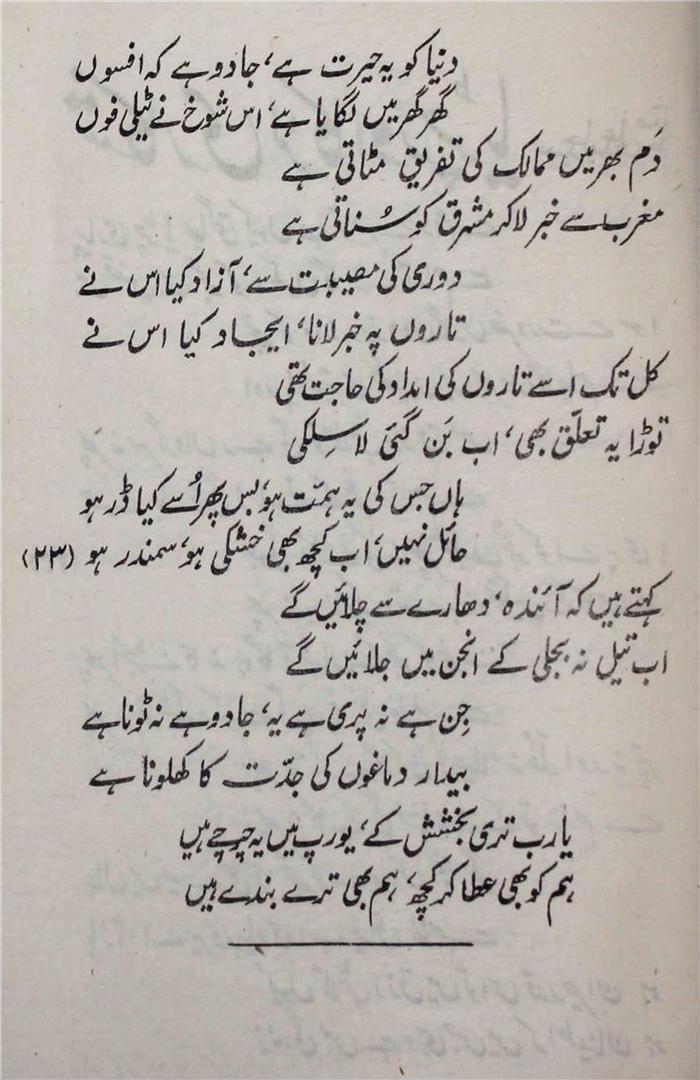 دنیا کو یہ حیرت ہے، جادو ہے کہ افسوں
گھر گھر میں لگایا ہے، اس شوخ نے ٹیلی فوں
دَم بھر میں ممالک کی تفریق مٹاتی ہے
مغرب سے خبر لاکر مشرق کو سُناتی ہے
دوری کی مصیبت سے، آزاد کیا اس نے
تاروں پہ خبر لانا، ایجاد کیا اس نے
کل تک اسے تاروں کی امداد کی حاجت تھی
توڑا یہ تعلّق بھی، اب بَن گئی لا سِلکی
ہاں جس کی یہ ہمّت ہو، بس پھر اُسے کیا ڈر ہو
حائل نہیں، اب کچھ بھی خشکی ہو، سمندر ہو (۲۳)
کہتے ہیں کہ آئندہ، دھارے سے چلائیں گے
اب تیل نہ بجلی کے انجن میں جلائیں گے
جِن ہے نہ پری ہے یہ، جادو ہے نہ ٹونا ہے
بیدار دماغوں کی جدّت کا کھلونا ہے
یارب تری بخشش کے، یورپ میں یہ چرچے ہیں
ہم کو بھی عطا کر کچھ، ہم بھی ترے بندے ہیں